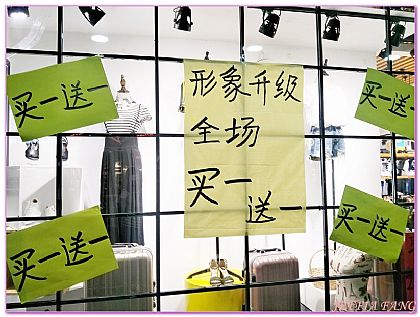 买一送一
形象升级
全场
买一
送一
买一送一
买一送一
买一送一